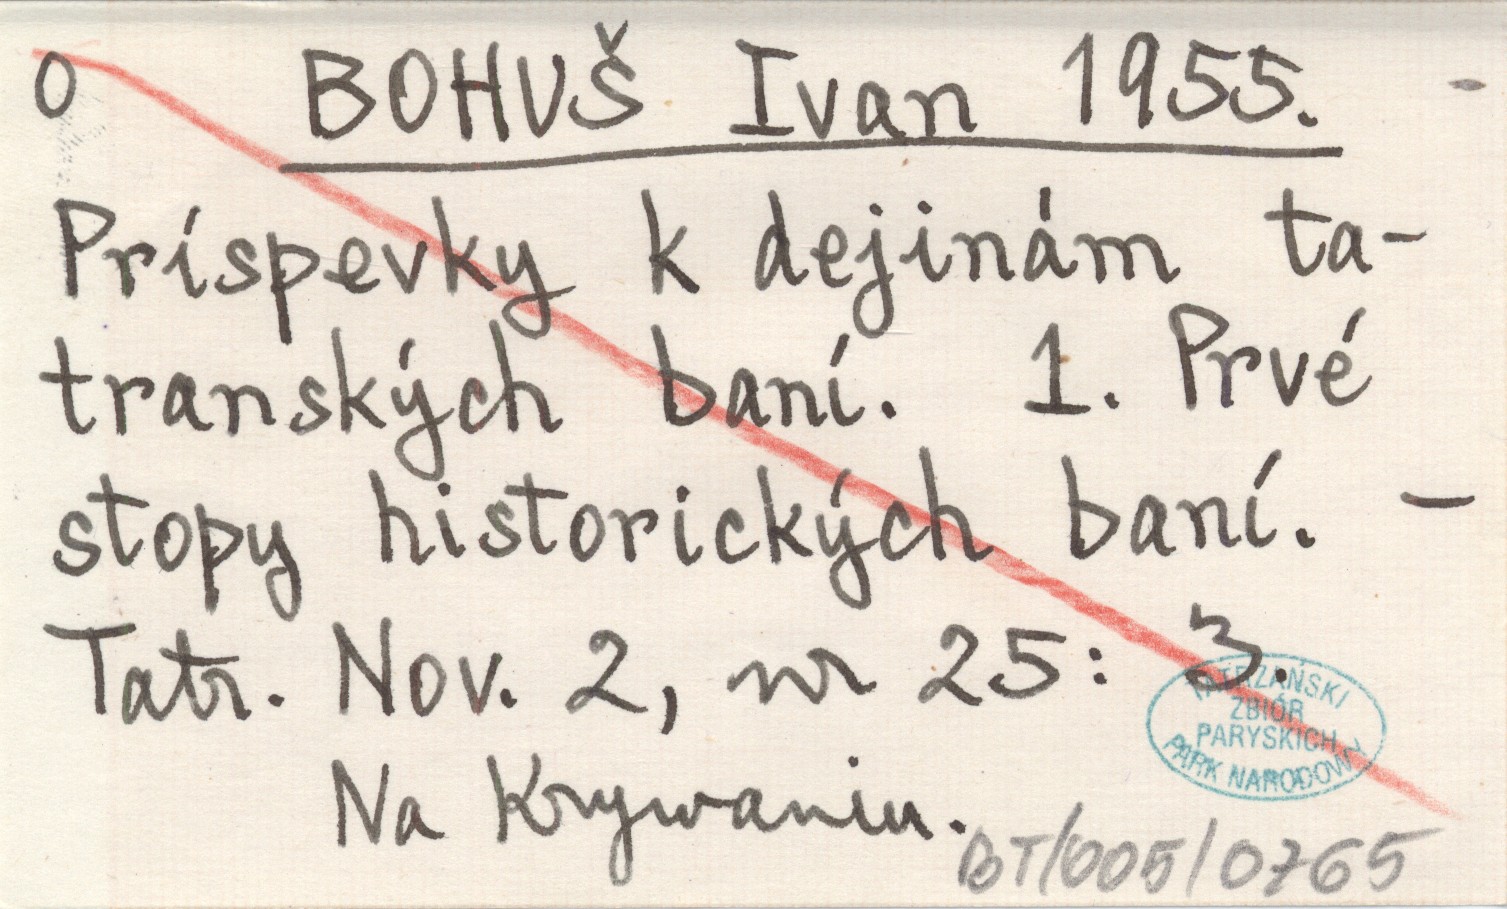 0 BOHUŠ Ivan 1955. -
Príspevky k dejinám ta-
tranských baní. 1. Prvé
stopy historických baní. —
Tatr. Nov. 2, nr 25: 3.
Na Krywaniu.
TATRZAŃSKI
ZBIÓR
PARYSKICH
PARK NARODOWY
BT/005/0765